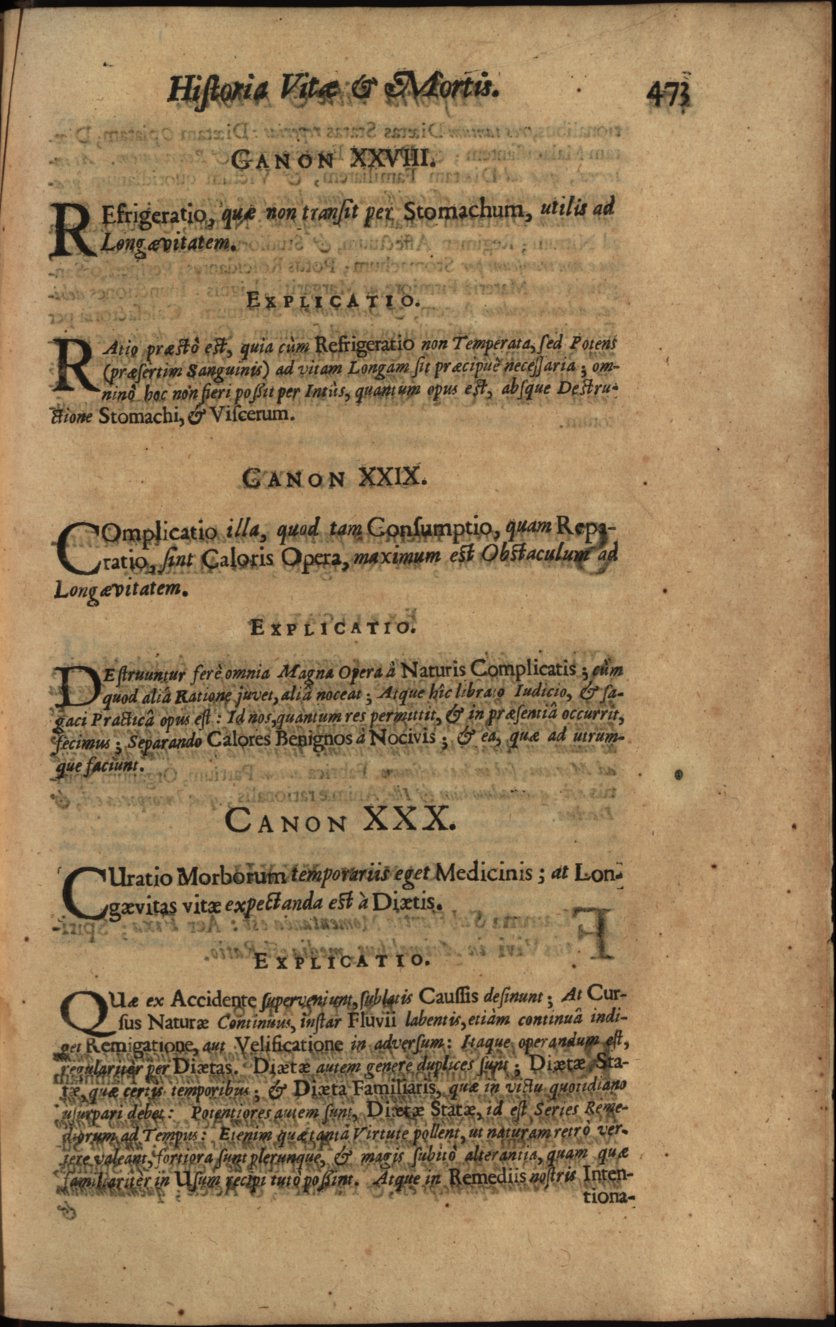 Hiſtoria Vitæ & Mortis. 473
CANON XXVIII.
REfrigeratio, quæ non tranſit per Stomachum, utilis ad
Longævitatem.
EXPLICATIO.
RAtio præſtò eſt, quia cùm Refrigeratio non Temperata, ſed Potens
(præſertim Sanguinis) ad vitam Longam ſit præcipuè neceſſaria; om-
ninò hoc non fieri poſſit per Intùs, quantum opus eſt, abſque Deſtru-
ctione Stomachi, & Viſcerum.
CANON XXIX.
COmplicatio illa, quod tam Conſumptio, quam Repa-
ratio, ſint Caloris Opera, maximum eſt Obſtaculum ad
Longævitatem.
EXPLICATIO.
DEſtruuntur ferè omnia Magna Opera à Naturis Complicatis; cùm
quod aliâ Ratione juvet, aliâ noceat; Atque hîc librato Iudicio, & ſa-
gaci Practicâ opus eſt: Id nos, quantum res permittit, & in præſentiâ occurrit,
fecimus; Separando Calores Benignos à Nocivis; & ea, quæ ad utrum-
que faciunt.
CANON XXX.
CUratio Morborum temporariis eget Medicinis; at Lon-
gævitas vitæ expectanda eſt à Diætis.
EXPLICATIO.
QUæ ex Accidente ſuperveniunt, ſublatis Cauſſis deſinunt; At Cur-
ſus Naturæ Continuus, inſtar Fluvii labentis, etiàm continuâ indi-
get Remigatione, aut Velificatione in adverſum: Itaque operandum eſt,
regulariter per Diætas. Diætæ autem genere duplices ſunt; Diætæ Sta-
tæ, quæ certis temporibus; & Diæta Familiaris, quæ in victu quotidiano
uſurpari debet: Potentiores autem ſunt, Diætæ Statæ, id eſt Series Reme-
diorum ad Tempus: Etenim quæ tantâ Virtute pollent, ut naturam retrò ver-
tere valeant, fortiora ſunt plerunque, & magis ſubitò alterantia, quam quæ
familiaritèr in Uſum recipi tutò poſſint. Atque in Remediis noſtris Inten-
tiona-